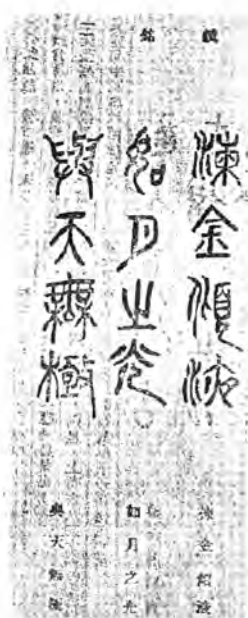 鏡銘
湅金液
如月之光
與天無極
湅金液
如月之光
與天無極